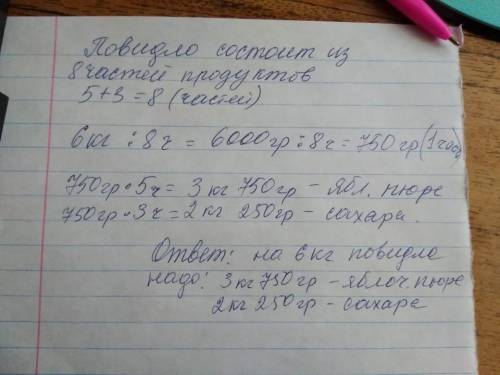 Повидло состоит из
8 частей продуктов
5+3=8 (частей)
6кг : 8ч = 6000гр : 8ч = 750гр (1 часть)
750гр • 5ч = 3 кг 750гр – ябл. пюре
750гр • 3ч = 2 кг 250гр – сахара.
Ответ: на 6 кг повидла
надо: 3 кг 750гр – яблоч. пюре
2 кг 250гр – сахара